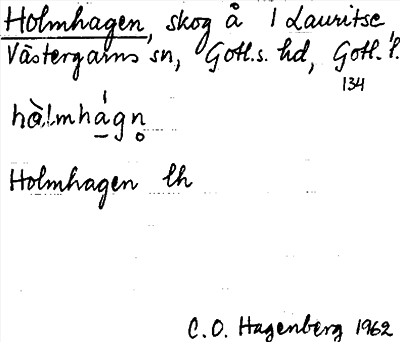 Holmhagen, skog å 1 Lauritse
Västergarns sn, Gotl.s. hd, Gotl. l.
134
hàlmhágn̥
Holmhagen lh
C.O. Hagenberg 1962